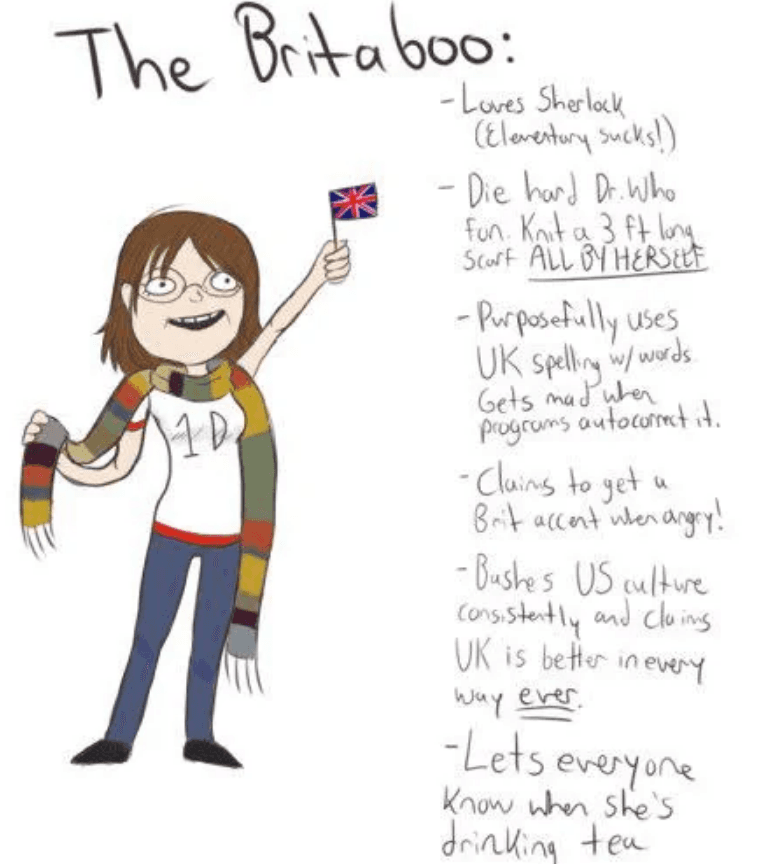 The Britaboo:
- Loves Sherlock
(Elementary sucks!)
- Die hard Dr. Who
fan. Knit a 3 ft long
scarf ALL BY HERSELF
- Purposefully uses
UK spelling w/ words.
Gets mad when
programs autocorrect it.
- Claims to get a
Brit accent when angry!
- Bashes US culture
consistently and claims
UK is better in every
way ever.
- Lets everyone
know when she's
drinking tea
1D